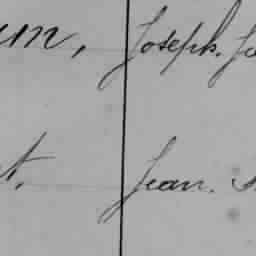 um, Joséph. Ju
t. Jean.